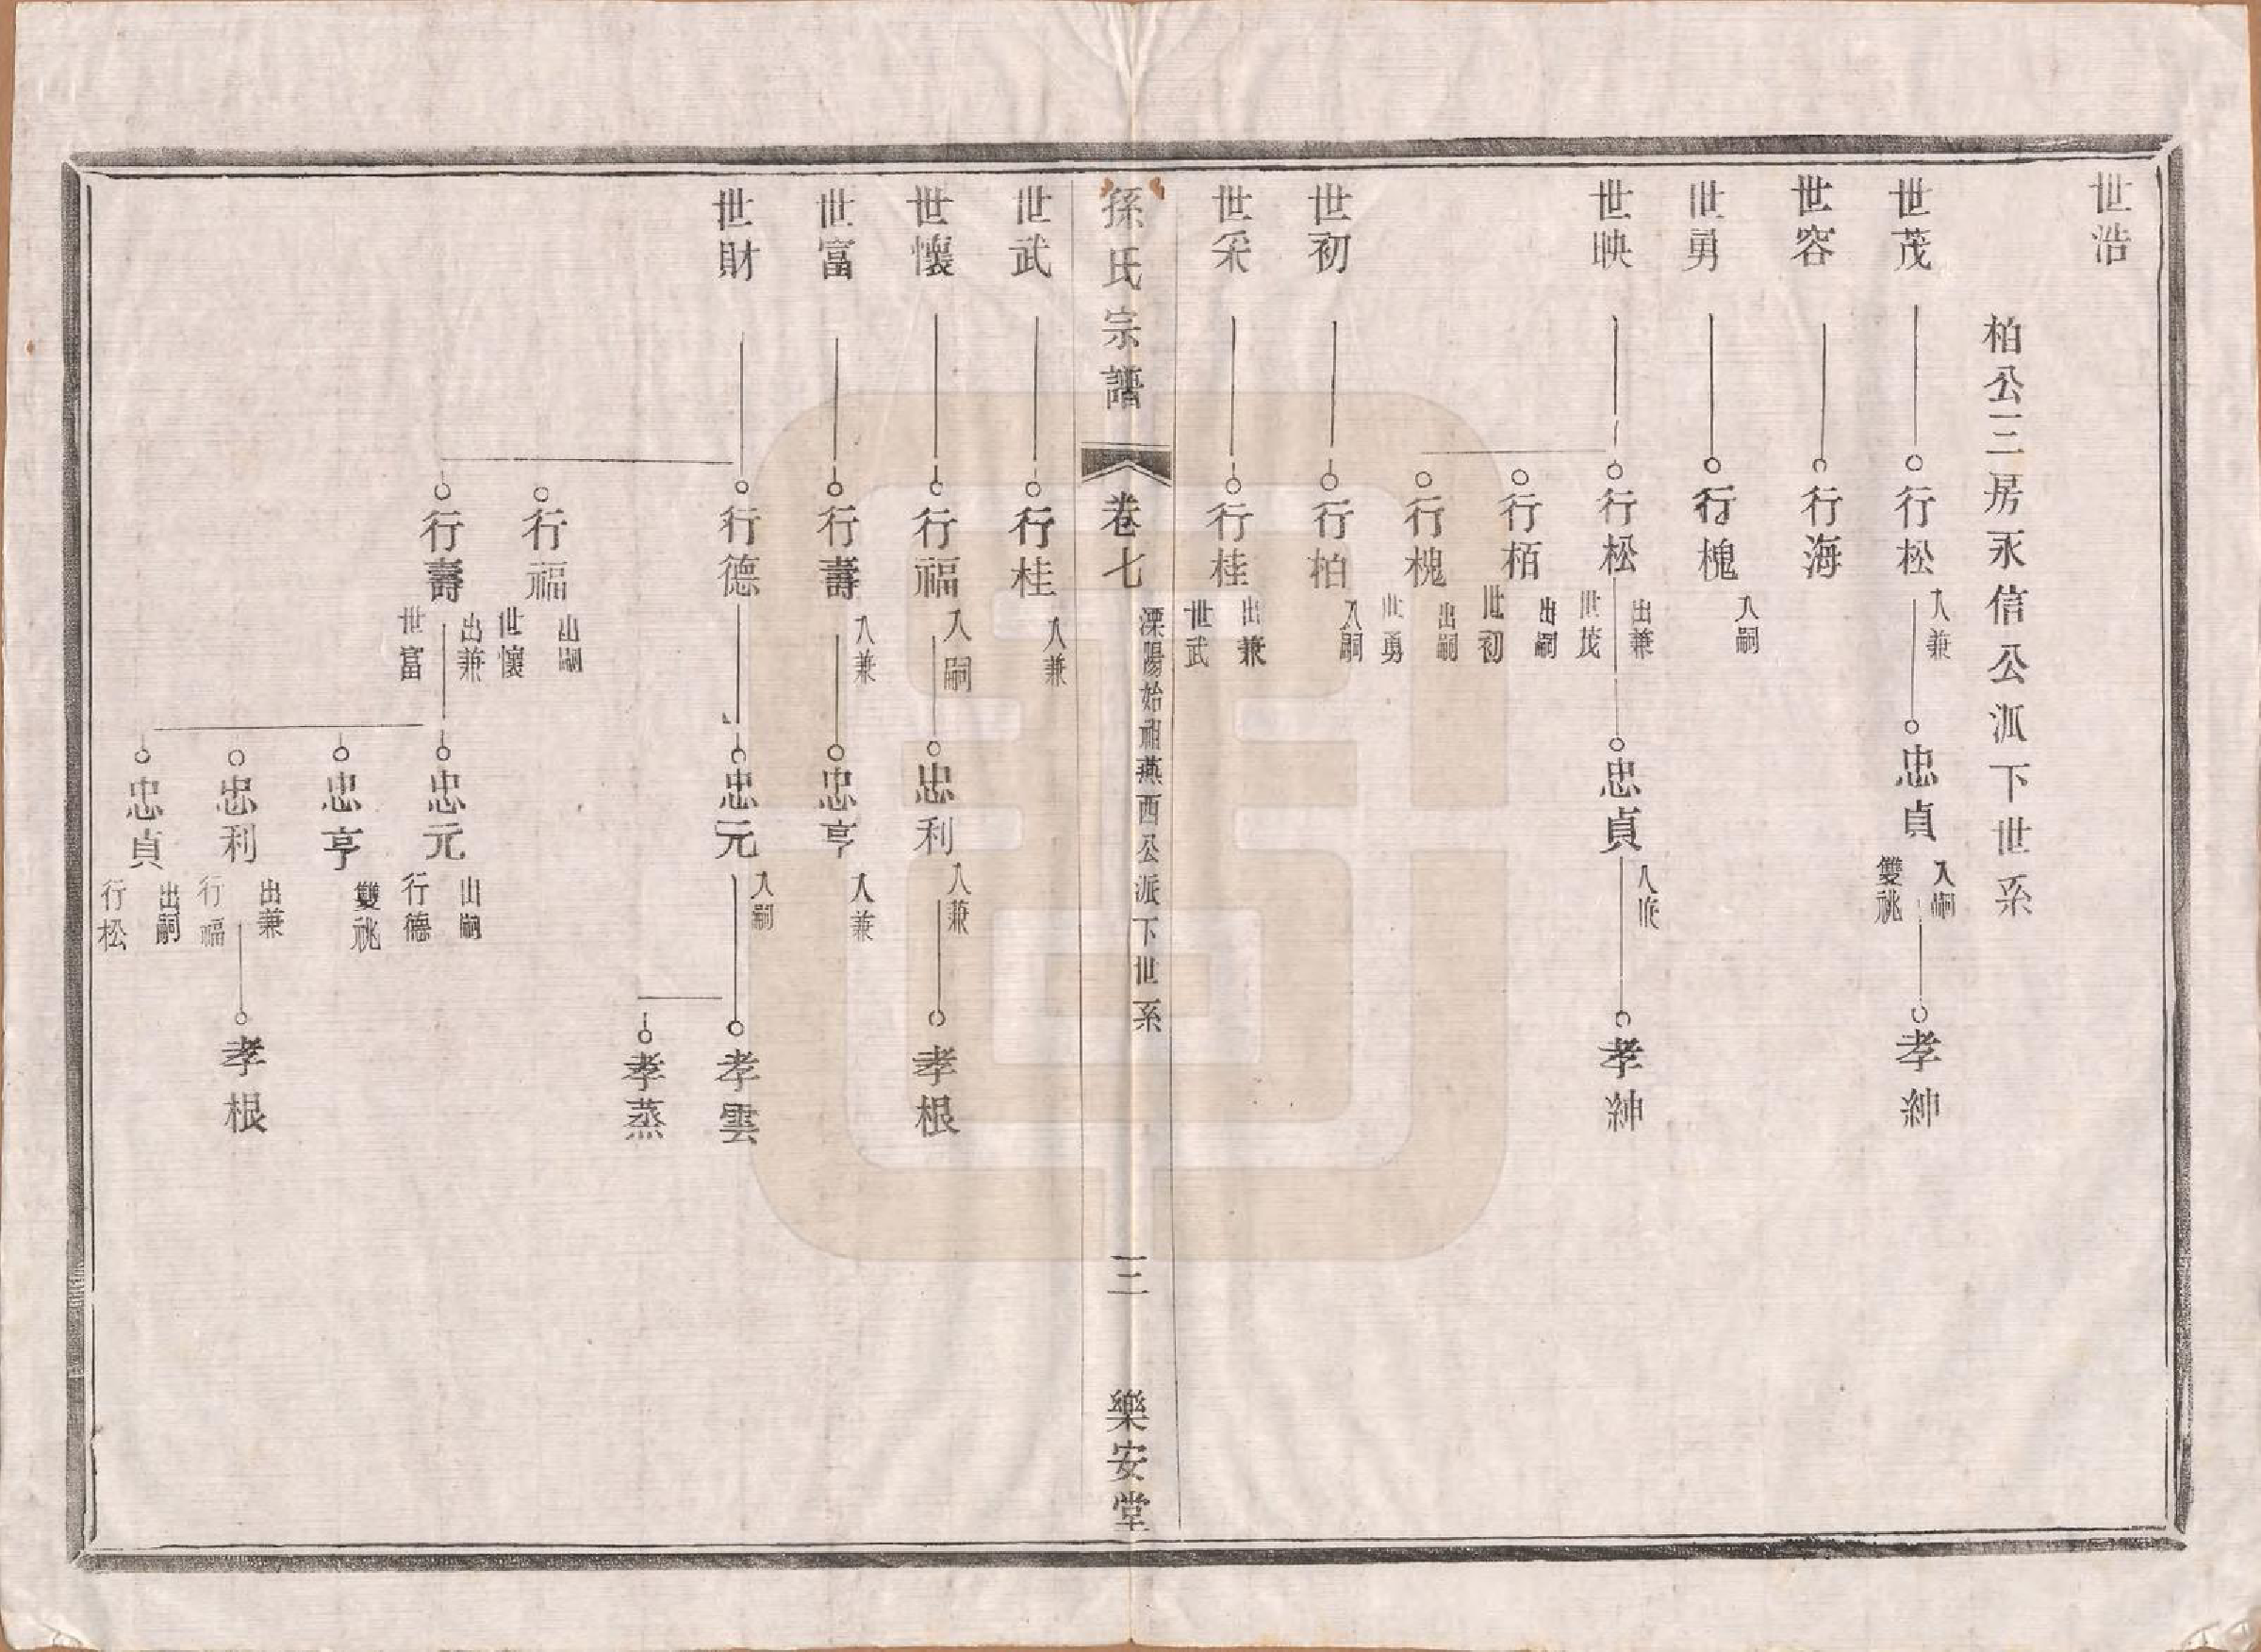 世浩
柏公三房永信公派下世系
世茂
行松
入兼
忠貞
入嗣
雙祧
孝紳
世容
行海
世勇
行槐
入嗣
世映
行松
出兼
世茂
忠貞
孝紳
行栢
出嗣
世初
行槐
出嗣
世勇
世初
行柏
入嗣
世采
行桂
出兼
世武
孫氏宗譜
卷七
溧陽始祖燕西公派下世系
三
樂安堂
世武
行桂
入兼
世懷
行福
入嗣
忠利
入兼
孝根
世富
行壽
入兼
忠亨
入兼
世財
行德
忠元
入嗣
孝雲
孝蒸
行福
出嗣
世懷
行壽
出兼
世富
忠元
出嗣
行德
忠亨
雙祧
忠利
出兼
行福
孝根
忠貞
出嗣
行松